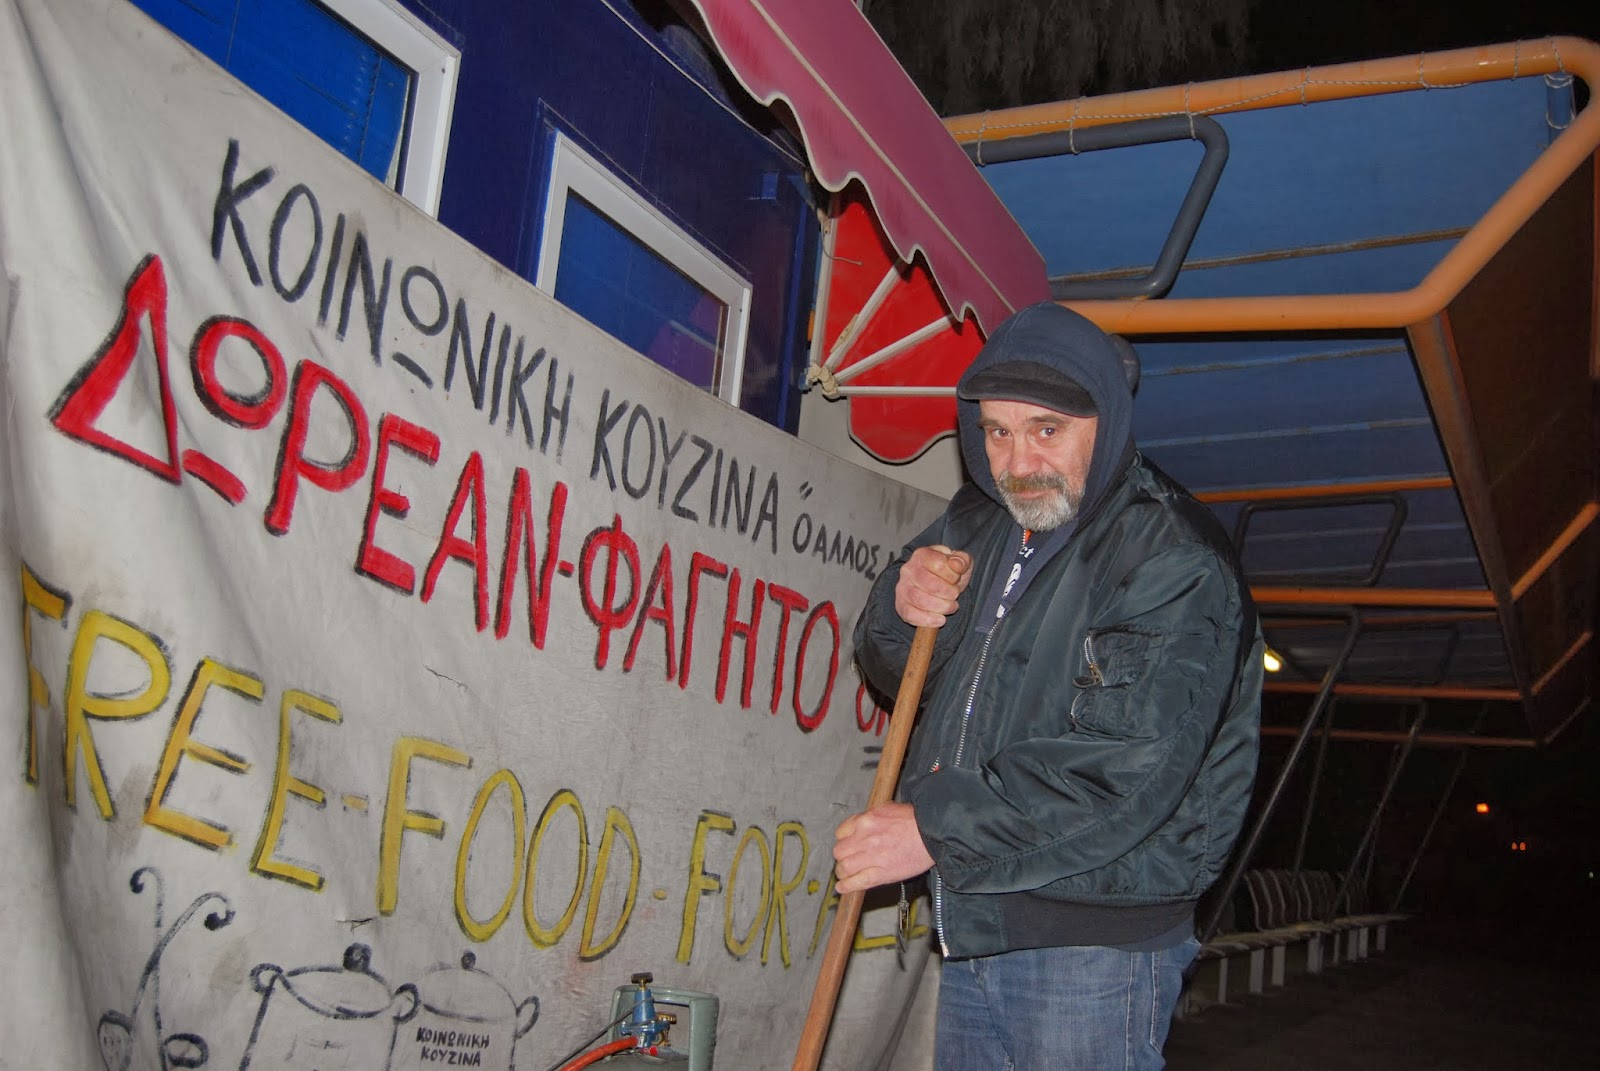 ΚΟΙΝΩΝΙΚΗ ΚΟΥΖΙΝΑ "Ο ΑΛΛΟΣ
ΔΩΡΕΑΝ-ΦΑΓΗΤΟ
FREE-FOOD-FOR-ALL
ΚΟΙΝΩΝΙΚΗ
ΚΟΥΖΙΝΑ